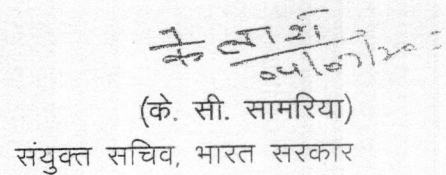 (के. सी. सामरिया)
संयुक्त सचिव, भारत सरकार